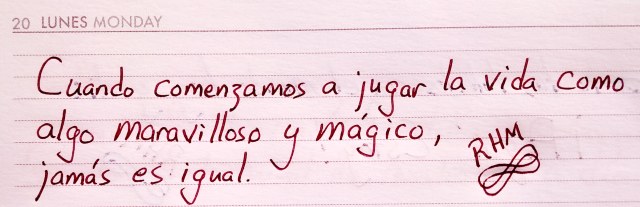 20 LUNES MONDAY
Cuando comenzamos a jugar la vida como
algo maravilloso y mágico,
jamás es igual.
RHM